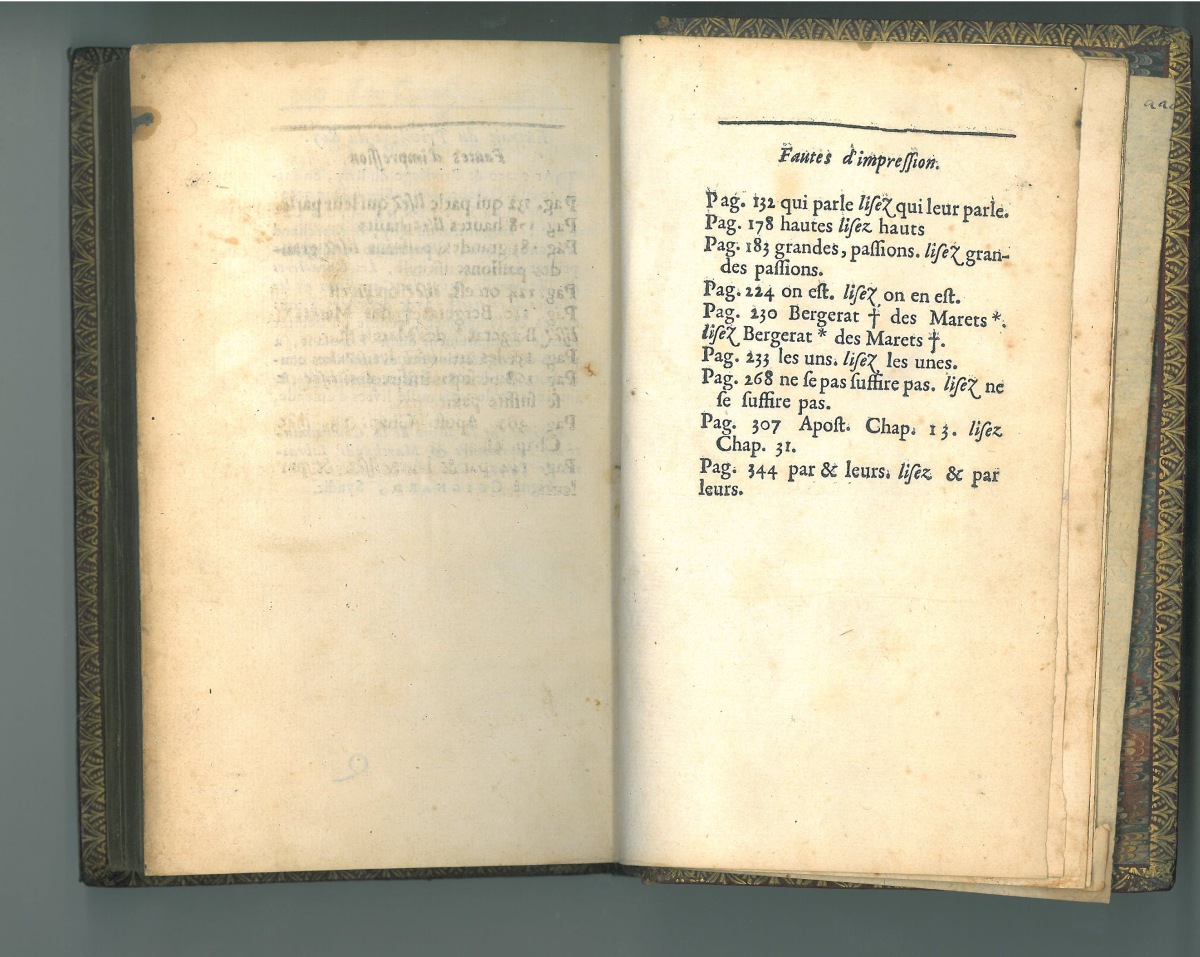 Fautes d'impreſſion.
Pag. 132 qui parle liſez qui leur parle.
Pag. 178 hautes liſez hauts
Pag. 183 grandes, paſſions. liſez gran-
des paſſions.
Pag. 224 on eſt. liſez on en eſt.
Pag. 230 Bergerat † des Marets *.
liſez Bergerat * des Marets †.
Pag. 233 les uns. liſez les unes.
Pag. 268 ne ſe pas ſuffire pas. liſez ne
ſe ſuffire pas.
Pag. 307 Apoſt. Chap. 13. liſez
Chap. 31.
Pag. 344 par & leurs. liſez & par
leurs.